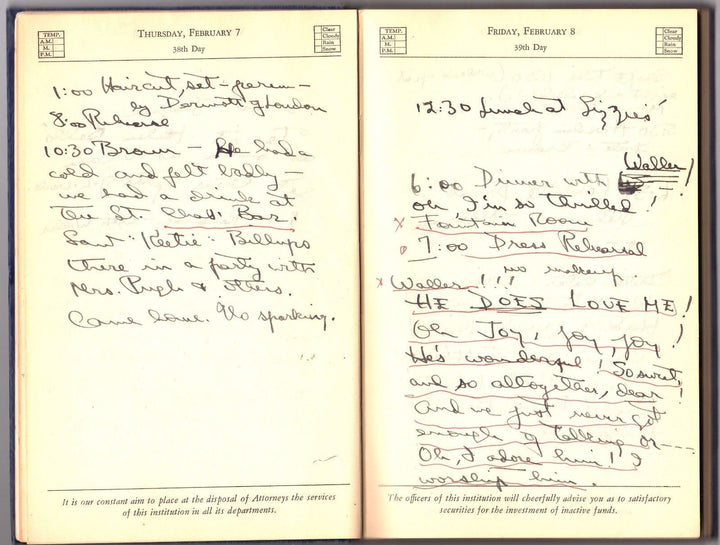 TEMP.
A.M.
M.
P.M.
THURSDAY, FEBRUARY 7
38th Day
Clear
Cloudy
Rain
Snow
1:00 Haircut, set - perm -
by Dermott of London
8:00 Rehearse
10:30 Brown - He had a
cold and felt badly -
we had a drink at
the St. Chas' Bar.
Saw "Keetie" Billups
there in a party with
Mrs. Pugh & others.
Came home. No sparking.
It is our constant aim to place at the disposal of Attorneys the services
of this institution in all its departments.
TEMP.
A.M.
M.
P.M.
FRIDAY, FEBRUARY 8
39th Day
Clear
Cloudy
Rain
Snow
12:30 Lunch at Lizzies'
Waller!
6:00 Dinner with
Oh I'm so thrilled!
x Fountain Room
7:00 Dress Rehearsal
no makeup.
x Waller!!!
HE DOES LOVE ME!
Oh Joy, joy, joy!
He's wonderful! So sweet,
and so altogether, dear!
And we just never got
enough of talking or ----
Oh, I adore him! I
worship him.
The officers of this institution will cheerfully advise you as to satisfactory
securities for the investment of inactive funds.